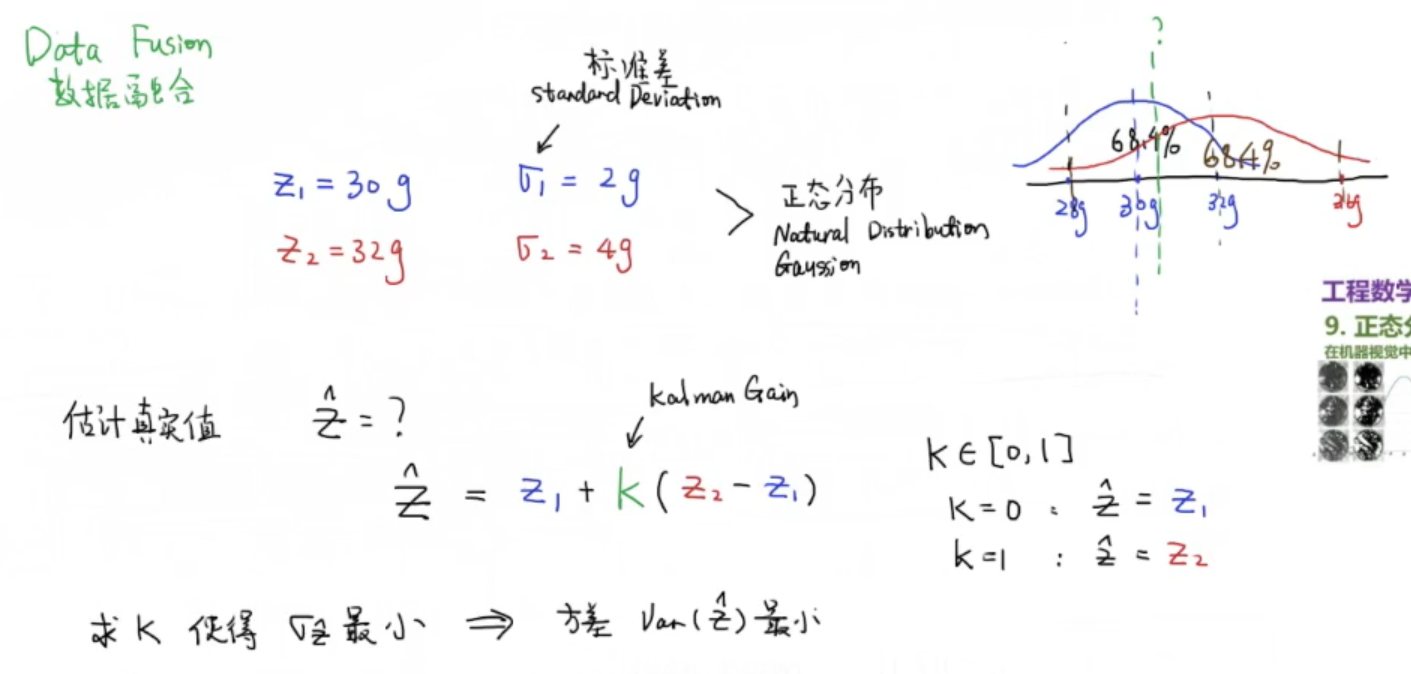 Data Fusion
数据融合
标准差
Standard Deviation
z₁ = 30g
σ₁ = 2g
z₂ = 32g
σ₂ = 4g
正态分布
Natural Distribution
Gaussion
?
68.4%
68.4%
28g
30g
32g
36g
工程数学
9. 正态分
在机器视觉中
估计真实值
ẑ = ?
Kalman Gain
ẑ = z₁ + k(z₂ - z₁)
k ∈ [0,1]
k = 0 : ẑ = z₁
k = 1 : ẑ = z₂
求 k 使得 σẑ 最小 ⇒ 方差 Var(ẑ) 最小